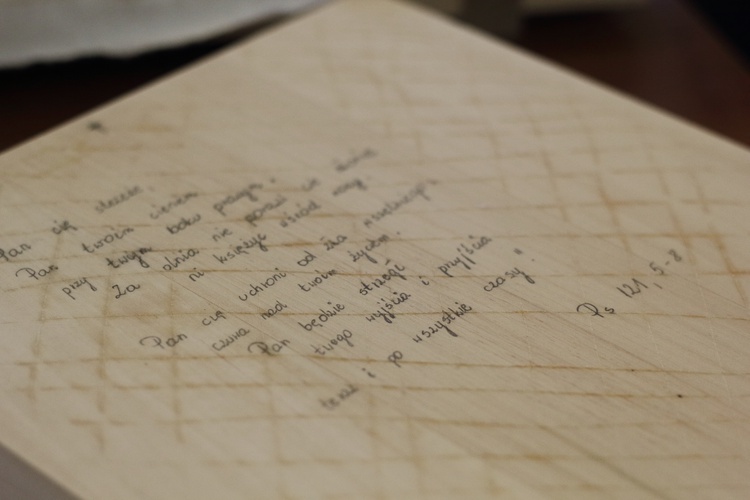 Pan cię strzeże,
Pan twoim cieniem
przy twym boku prawym.
Za dnia nie porazi cię słońce
ni księżyc wśród nocy.
Pan cię uchroni od zła wszelkiego
czuwa nad twoim życiem.
Pan będzie strzegł
twego wyjścia i przyjścia
teraz i po wszystkie czasy."
Ps 121, 5-8